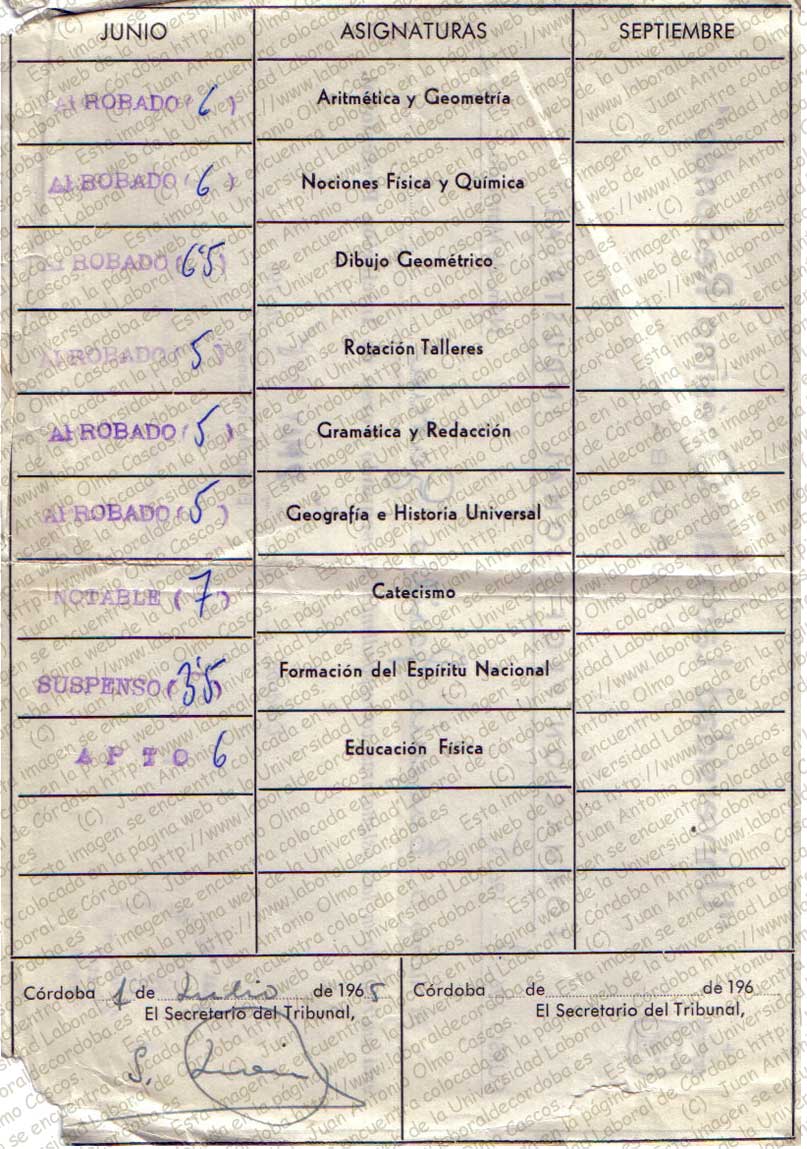 JUNIO ASIGNATURAS SEPTIEMBRE
APROBADO ( 6 ) Aritmética y Geometría
APROBADO ( 6 ) Nociones Física y Química
APROBADO ( 6'5 ) Dibujo Geométrico
APROBADO ( 5 ) Rotación Talleres
APROBADO ( 5 ) Gramática y Redacción
APROBADO ( 5 ) Geografía e Historia Universal
NOTABLE ( 7 ) Catecismo
SUSPENSO ( 3'5 ) Formación del Espíritu Nacional
A P T O 6 Educación Física
Córdoba 1 de Julio de 1965 Córdoba de de 196
El Secretario del Tribunal, El Secretario del Tribunal,
(C) Juan Antonio Olmo Cascos. Esta imagen se encuentra colocada en la página web de la Universidad Laboral de Córdoba http://www.laboraldecordoba.es